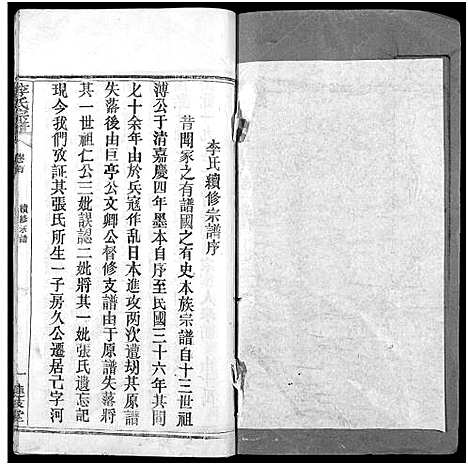 李氏續修宗譜序
昔聞家之有譜國之有史本族宗譜自十三世祖
溥公于清嘉慶四年墨本自序至民國三十六年其間
七十余年由於兵寇作乱日本進攻两次遭胡其原譜
失落後由巨亭公文卿公督修支譜由于原譜失落將
其一世祖仁公三妣誤認二妣將其一妣張氏遺忘記
現今我們攷証其張氏所生一子房久公遷居己字河
李氏宗譜
卷首
續修宗譜
一